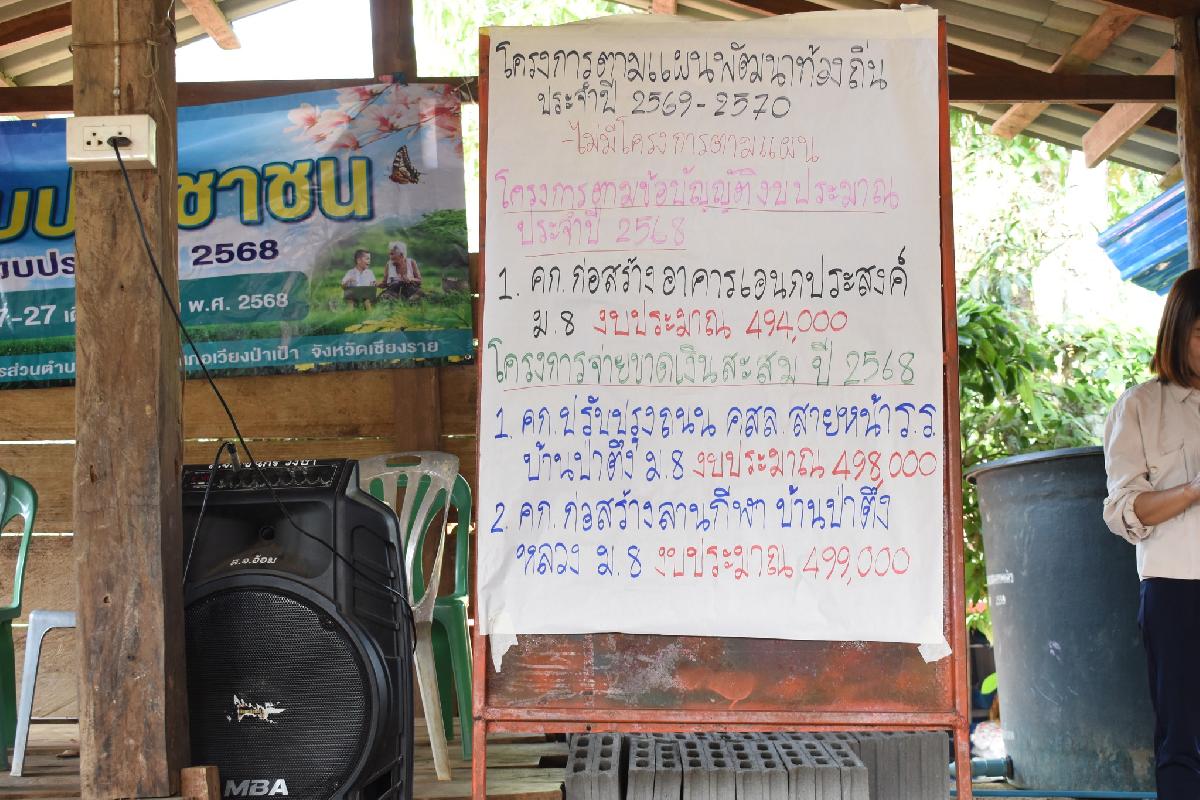 โครงการตามแผนพัฒนาท้องถิ่น
ประจำปี 2569-2570
-ไม่มีโครงการตามแผน
โครงการตามข้อบัญญัติงบประมาณ
ประจำปี 2568
1. คก. ก่อสร้าง อาคารเอนกประสงค์
ม.8 งบประมาณ 494,000
โครงการจ่ายขาดเงินสะสม ปี 2568
1. คก. ปรับปรุงถนน คสล. สายหน้า ร.ร.
บ้านป่าตึง ม.8 งบประมาณ 498,000
2. คก. ก่อสร้างลานกีฬา บ้านป่าตึง
หลวง ม.8 งบประมาณ 499,000
ชาชน
2568
7-27
พ.ศ. 2568
รส่วนตำบ
เภอเวียงป่าเป้า จังหวัดเชียงราย
ส.จ.อ้อม
MBA